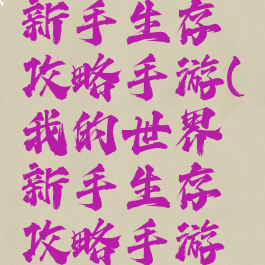 新手生存
攻略手游(
我的世界
新手生存
攻略手游